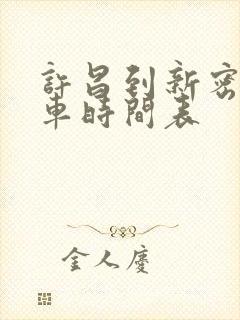 許昌到新密
車時間表
金人慶